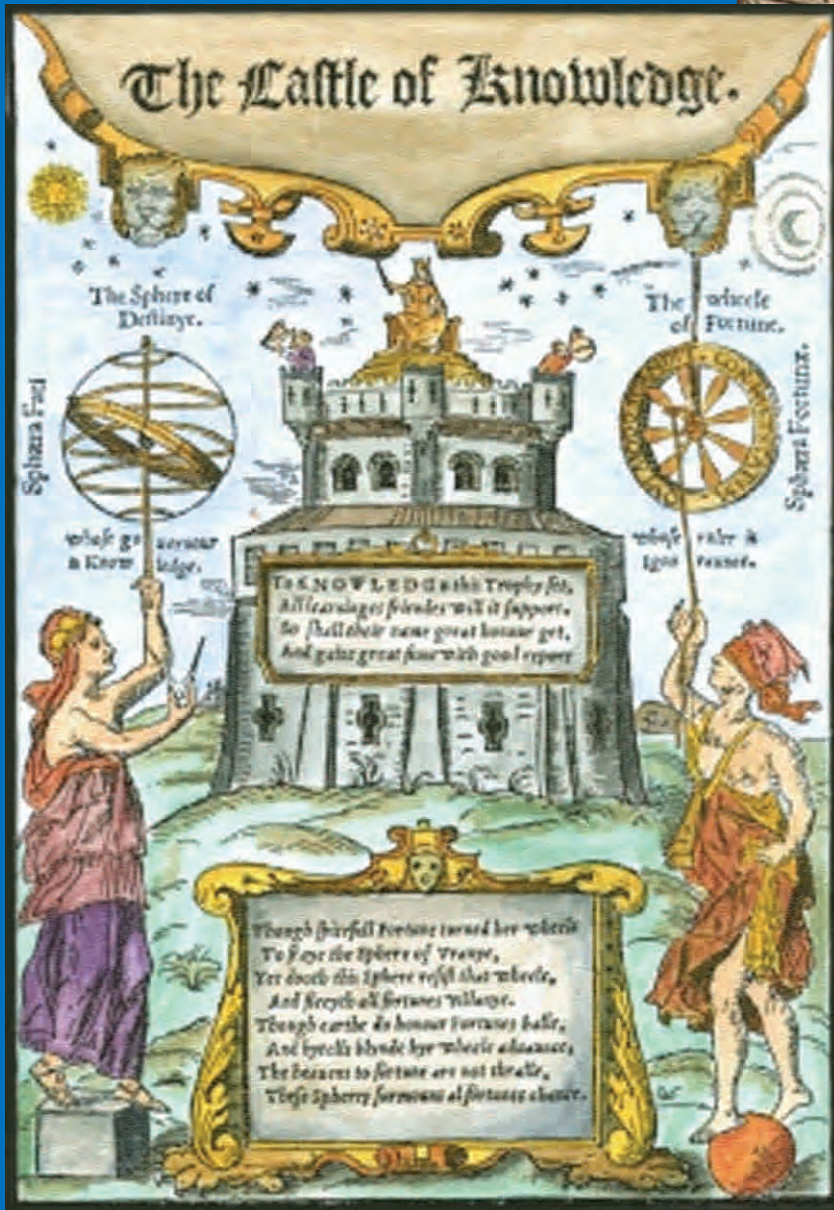 The Castle of Knowledge.
The Sphere of
Destinye.
The wheele
of Fortune.
Sphæra Fati
Sphæra Fortunæ.
whose gouernour
is Knowledge.
whose ruler is
Ignoraunce.
To KNOWLEDGE is this Trophy set,
All learninges friendes will it support.
So shall their name great honour get,
And gaine great fame with good report
Though spitefull Fortune turned her wheele
To staye the Sphere of Vranye,
Yet dooth this Sphere resist that wheele,
And fleeyth all fortunes villanye.
Though earthe do honour Fortunes balle,
And bytells blynde hyr wheele aduaunce,
The heauens to fortune are not thralle,
These Spheres surmount al fortunes chance.